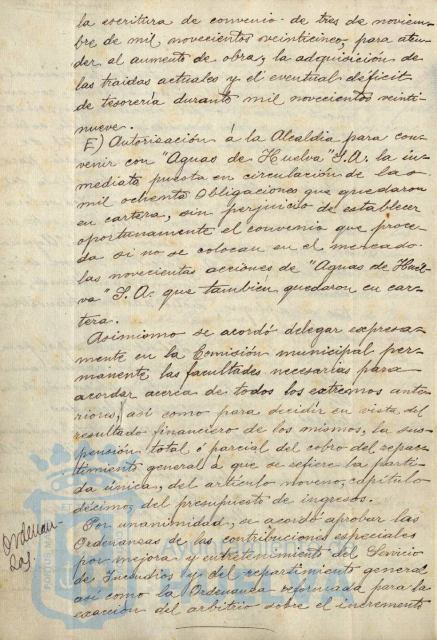 la escritura de convenio de tres de noviem-
bre de mil novecientos veinticinco, para aten-
der al aumento de obra, la adquisición de
las traidas actuales y el eventual déficit
de tesorería durante mil novecientos veinti-
nueve.
E) Autorisación á la Alcaldia para con-
venir con "Aguas de Huelva" S.A. la in-
mediata puesta en circulación de las
mil ochenta Obligaciones que quedaron
en cartera, sin perjuicio de establecer
oportunamente el convenio que proce-
da si no se colocan en el mercado
las novecientas acciones de "Aguas de Huel-
va" S.A. que tambien quedaron en car-
tera.
Asimismo se acordó delegar expresa-
mente en la Comisión municipal per-
manente las facultades necesarias para
acordar acerca de todos los extremos ante-
riores, así como para decidir en vista del
resultado financiero de los mismos, la sus-
pensión total ó parcial del cobro del repar-
timiento general a que se refiere la parti-
da única, del artículo noveno, capítulo
décimo, del presupuesto de ingresos.
Por unanimidad, se acordó aprobar las
Ordenansas de las contribuciones especiales
por mejora y entretenimiento del Servicio
de Incendios y del repartimiento general
así como la Ordenanza reformada para la
exacción del arbitrio sobre el incremento
Ordenan-
zas.